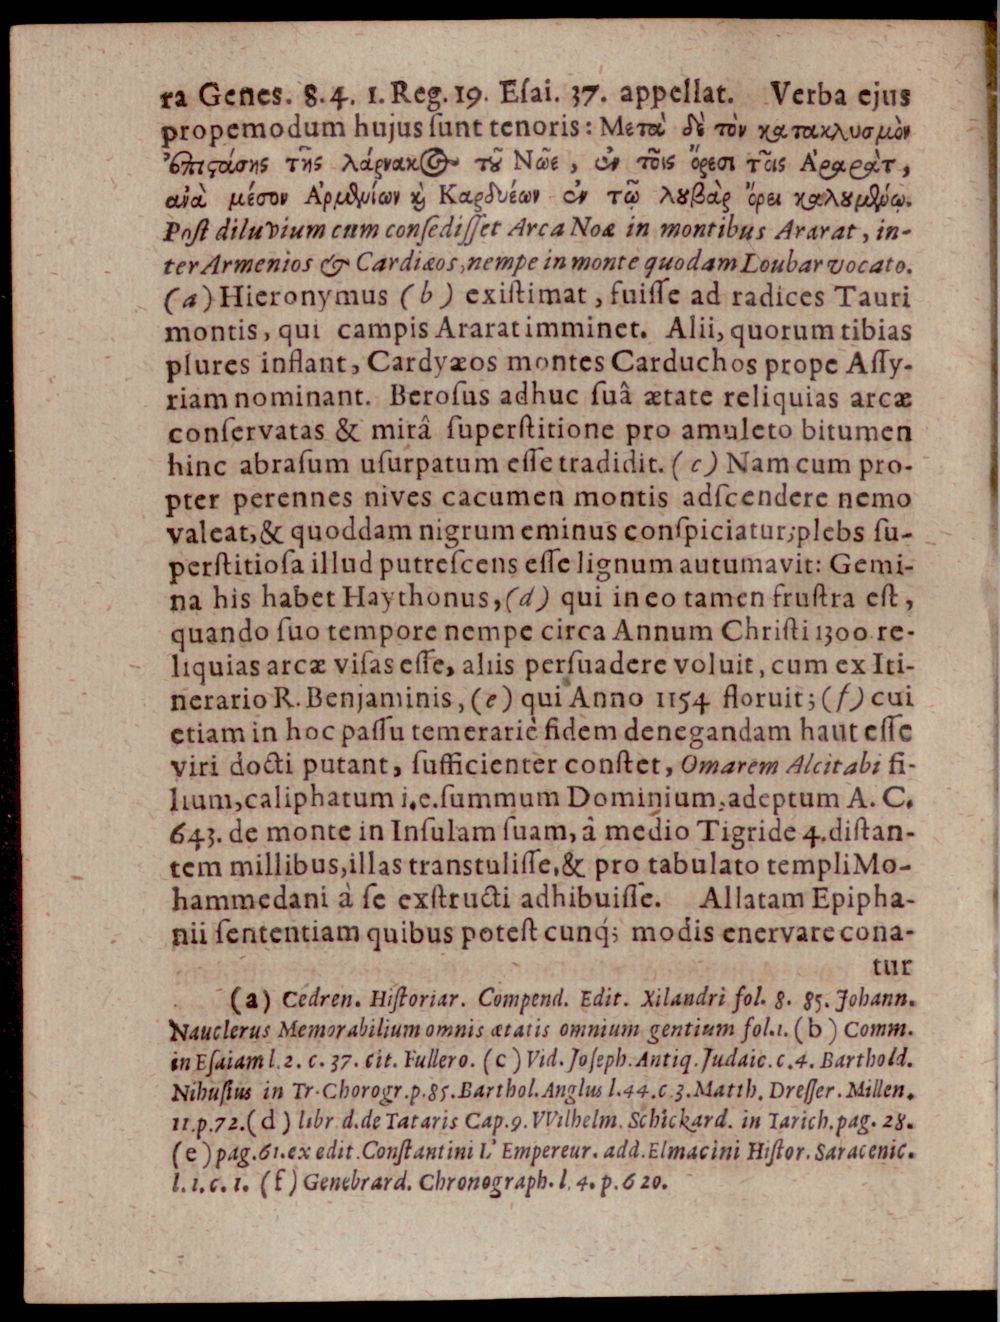 ra Genes. 8.4. 1. Reg. 19. Eſai. 37. appellat. Verba ejus
propemodum hujus ſunt tenoris: Μετὰ δὲ τὸν κατακλυσμὸν
ἐπιϛάσης τῆς λάρνακος τȣ͂ Νῶε, ἐν τοῖς ὄρεσι τοῖς Ἀραρὰτ,
ἀνὰ μέσον Ἀρμενίων ϗ Καρδυέων ἐν τῷ λȣβὰρ ὄρει καλȣμένῳ.
Poſt diluvium cum conſediſſet Arca Noæ in montibus Ararat, in-
ter Armenios & Cardiæos, nempe in monte quodam Loubar vocato.
(a) Hieronymus (b) exiſtimat, fuiſſe ad radices Tauri
montis, qui campis Ararat imminet. Alii, quorum tibias
plures inflant, Cardyæos montes Carduchos prope Aſſy-
riam nominant. Beroſus adhuc ſuâ ætate reliquias arcæ
conſervatas & mirâ ſuperſtitione pro amuleto bitumen
hinc abraſum uſurpatum eſſe tradidit. (c) Nam cum pro-
pter perennes nives cacumen montis adſcendere nemo
valeat, & quoddam nigrum eminus conſpiciatur; plebs ſu-
perſtitioſa illud putreſcens eſſe lignum autumavit: Gemi-
na his habet Haythonus, (d) qui in eo tamen fruſtra eſt,
quando ſuo tempore nempe circa Annum Chriſti 1300 re-
liquias arcæ viſas eſſe, aliis perſuadere voluit, cum ex Iti-
nerario R. Benjaminis, (e) qui Anno 1154 floruit; (f) cui
etiam in hoc paſſu temerariè fidem denegandam haut eſſe
viri docti putant, ſufficienter conſtet, Omarem Alcitabi fi-
lium, caliphatum i.e. ſummum Dominium, adeptum A. C.
643. de monte in Inſulam ſuam, â medio Tigride 4. diſtan-
tem millibus, illas transtuliſſe, & pro tabulato templi Mo-
hammedani à ſe exſtructi adhibuiſſe. Allatam Epipha-
nii ſententiam quibus poteſt cunq́; modis enervare cona-
tur
(a) Cedren. Hiſtoriar. Compend. Edit. Xilandri fol. 8. 85. Johann.
Nauclerus Memorabilium omnis ætatis omnium gentium fol. 1. (b) Comm.
in Eſaiam l. 2. c. 37. cit. Fullero. (c) Vid. Joſeph. Antiq. Judaic. c. 4. Barthold.
Nihuſius in Tr. Chorogr. p. 85. Barthol. Anglus l. 44. c. 3. Matth. Dreſſer. Millen.
11. p. 72. (d) libr d. de Tataris Cap. 9. VVilhelm. Schickard. in Tarich. pag. 28.
(e) pag. 61. ex edit. Conſtantini L' Empereur. add. Elmacini Hiſtor. Saracenic.
l. 1. c. 1. (f) Genebrard. Chronograph. l. 4. p. 620.